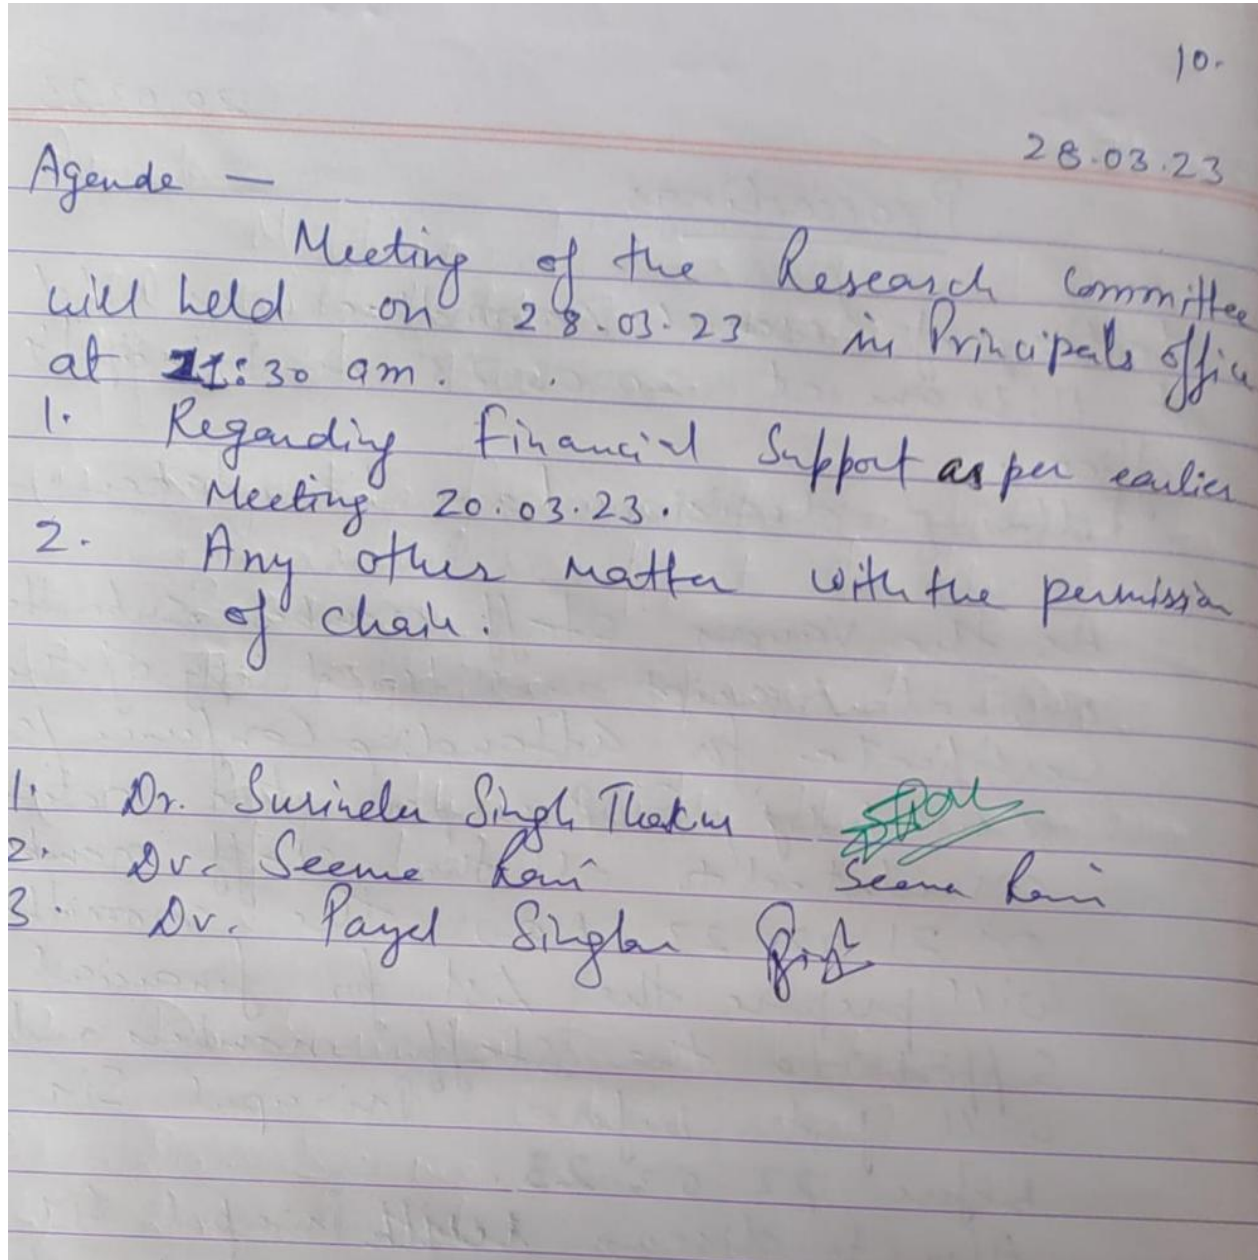 10.
28.03.23
Agende —
Meeting of the Research Committee
will held on 28.03.23 in Principals office
at 11:30 am.
1. Regarding Financial Support as per earlier
Meeting 20.03.23.
2. Any other matter with the permission
of chair.
1. Dr. Surinder Singh Thakur
2. Dr. Seema Rani Seema Rani
3. Dr. Payal Singla